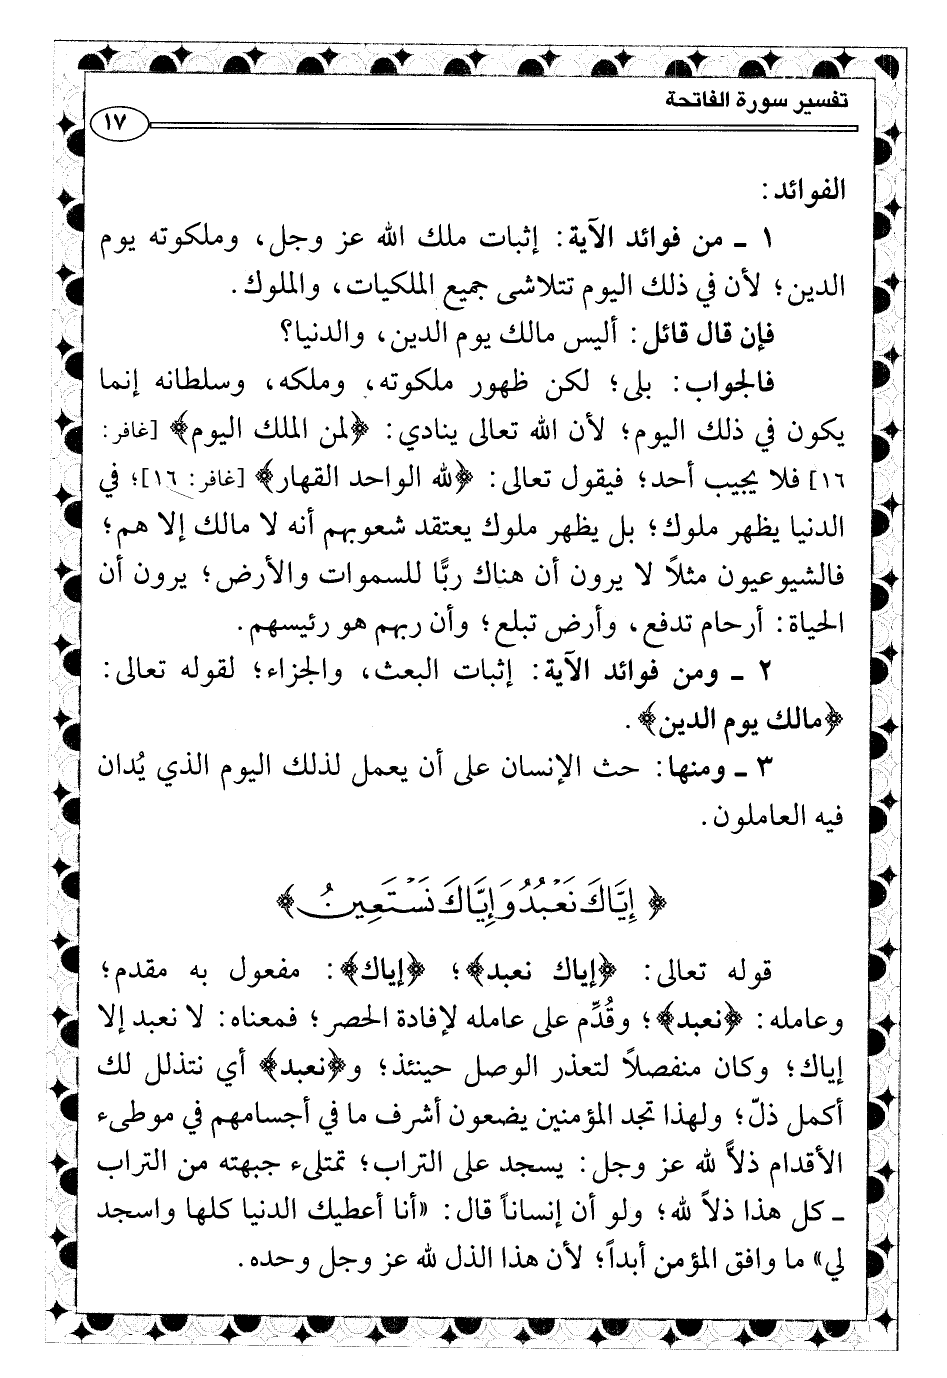 تفسير سورة الفاتحة
١٧
الفوائد:
١ ـ من فوائد الآية: إثبات ملك الله عز وجل، وملكوته يوم
الدين؛ لأن في ذلك اليوم تتلاشى جميع الملكيات، والملوك.
فإن قال قائل: أليس مالك يوم الدين، والدنيا؟
فالجواب: بلى؛ لكن ظهور ملكوته، وملكه، وسلطانه إنما
يكون في ذلك اليوم؛ لأن الله تعالى ينادي: ﴿لمن الملك اليوم﴾ [غافر:
١٦] فلا يجيب أحد؛ فيقول تعالى: ﴿لله الواحد القهار﴾ [غافر: ١٦]؛ في
الدنيا يظهر ملوك؛ بل يظهر ملوك يعتقد شعوبهم أنه لا مالك إلا هم؛
فالشيوعيون مثلاً لا يرون أن هناك ربًّا للسموات والأرض؛ يرون أن
الحياة: أرحام تدفع، وأرض تبلع؛ وأن ربهم هو رئيسهم.
٢ ـ ومن فوائد الآية: إثبات البعث، والجزاء؛ لقوله تعالى:
﴿مالك يوم الدين﴾.
٣ ـ ومنها: حث الإنسان على أن يعمل لذلك اليوم الذي يُدان
فيه العاملون.
﴿إِيَّاكَ نَعْبُدُ وَإِيَّاكَ نَسْتَعِينُ﴾
قوله تعالى: ﴿إياك نعبد﴾؛ ﴿إياك﴾: مفعول به مقدم؛
وعامله: ﴿نعبد﴾؛ وقُدِّم على عامله لإفادة الحصر؛ فمعناه: لا نعبد إلا
إياك؛ وكان منفصلاً لتعذر الوصل حينئذ؛ و﴿نعبد﴾ أي نتذلل لك
أكمل ذلّ؛ ولهذا تجد المؤمنين يضعون أشرف ما في أجسامهم في موطىء
الأقدام ذلاًّ لله عز وجل: يسجد على التراب؛ تمتلىء جبهته من التراب
ـ كل هذا ذلاً لله؛ ولو أن إنساناً قال: «أنا أعطيك الدنيا كلها واسجد
لي» ما وافق المؤمن أبداً؛ لأن هذا الذل لله عز وجل وحده.